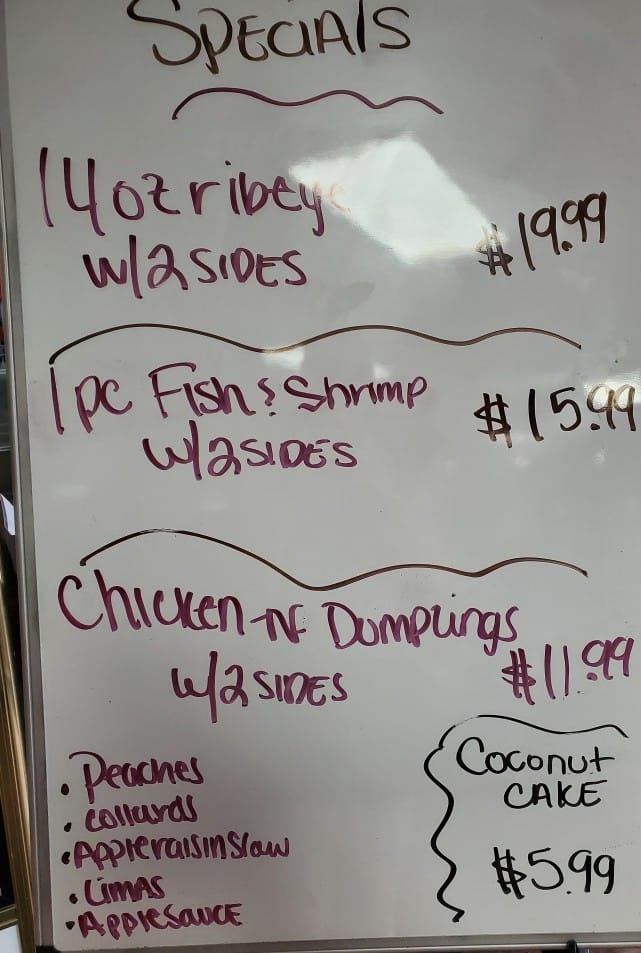 SPECIAlS
14oz ribeye
$19.99
W/2 SIDES
1pc Fish & Shrimp
$15.99
W/2 SIDES
Chicken -N- Dumplings
W/2 SIDES
$11.99
• Peaches
• collards
• Appleraisinslaw
• LimAS
• ApplesAuce
Coconut
CAKE
$5.99